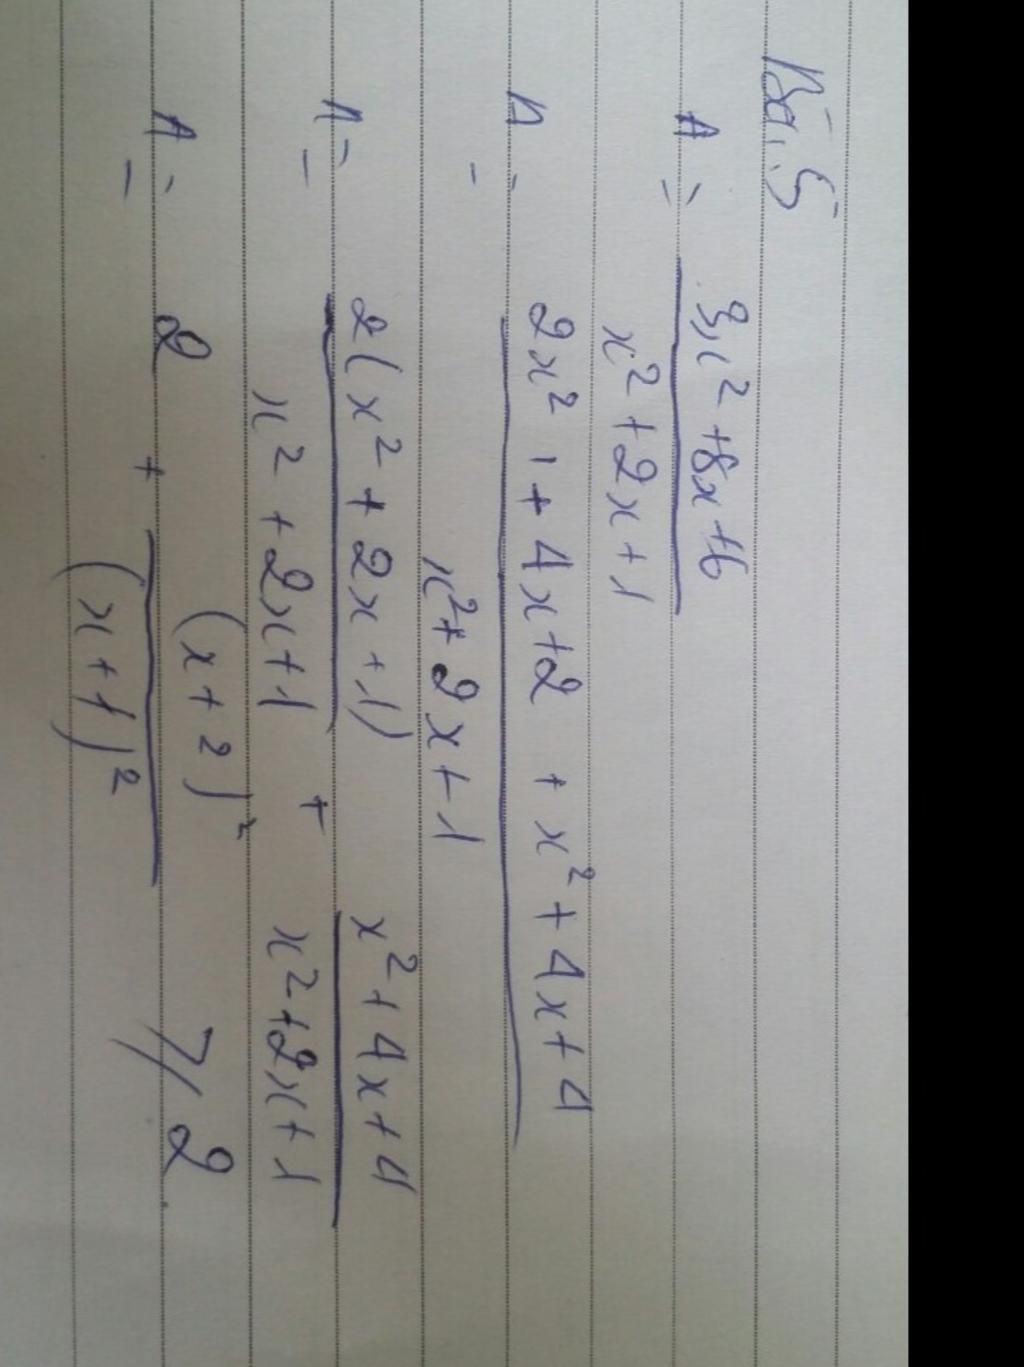 Bài 5
A = 3x² + 8x + 6
x² + 2x + 1
A = 2x² + 4x + 2 + x² + 4x + 4
x² + 2x + 1
A = 2(x² + 2x + 1) + x² + 4x + 4
x² + 2x + 1 x² + 2x + 1
A = 2 + (x + 2)² ⩾ 2
(x + 1)²